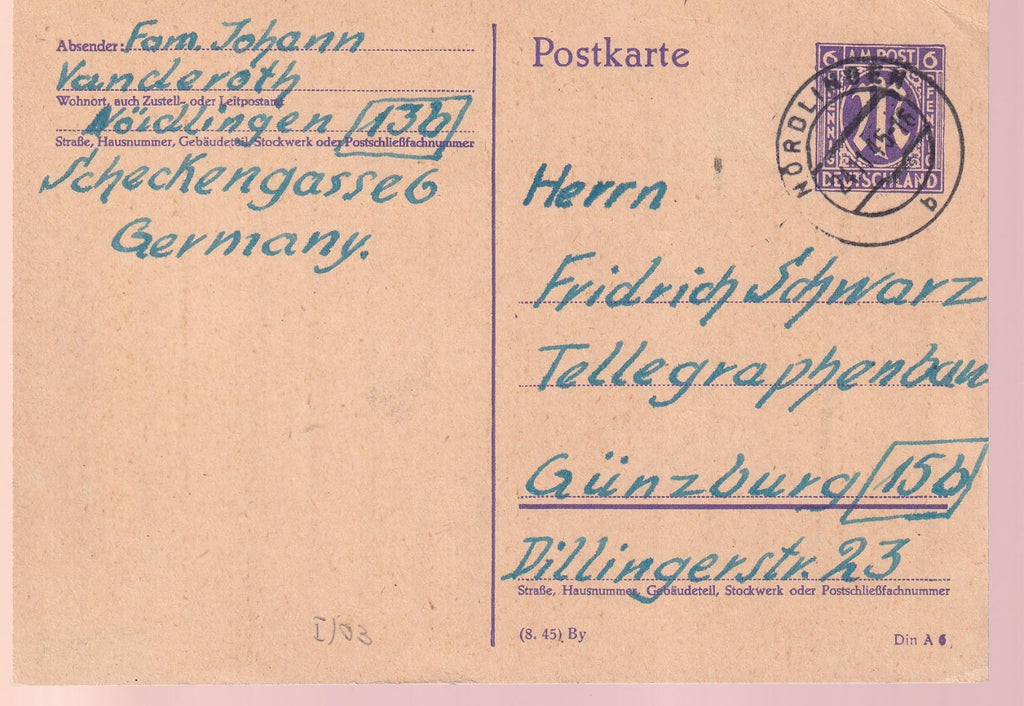 Absender: Fam. Johann
Vanderoth
Wohnort, auch Zustell- oder Leitpostamt
Nöidlingen 13b
Straße, Hausnummer, Gebäudeteil, Stockwerk oder Postschließfachnummer
Scheckengasse 6
Germany.
Postkarte
6 AM POST 6
PFENNIG
PFENNIG
M
DEUTSCHLAND
NÖRDLINGEN
b
Herrn
Fridrich Schwarz
Tellegraphenbau
Günzburg 15b
Dillingerstr. 23
Straße, Hausnummer, Gebäudeteil, Stockwerk oder Postschließfachnummer
(8. 45) By
Din A 6